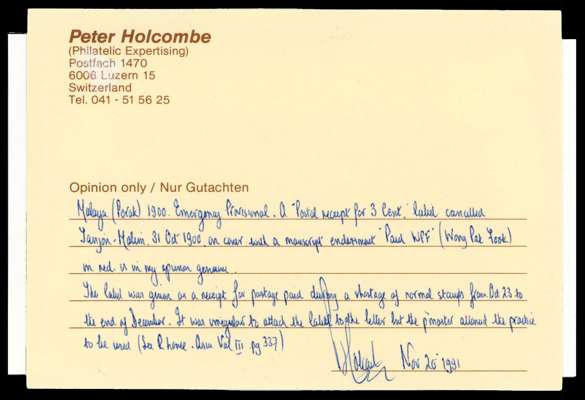 Peter Holcombe
(Philatelic Expertising)
Postfach 1470
6006 Luzern 15
Switzerland
Tel. 041 - 51 56 25
Opinion only / Nur Gutachten
Malaya (Perak) 1900. Emergency Provisional. A "Postal receipt for 3 Cent", label cancelled
Tanjon-Malim, 31 Oct 1900, on cover with a manuscript endorsement "Paid WPF" (Wong Pak Fook)
in red is in my opinion genuine.
The label was given as a receipt for postage paid during a shortage of normal stamps from Oct 23 to
the end of December. It was irregular to attach the label to the letter but the p'master allowed the practice
to be used (Vol III pg 337)
Nov 20 1991